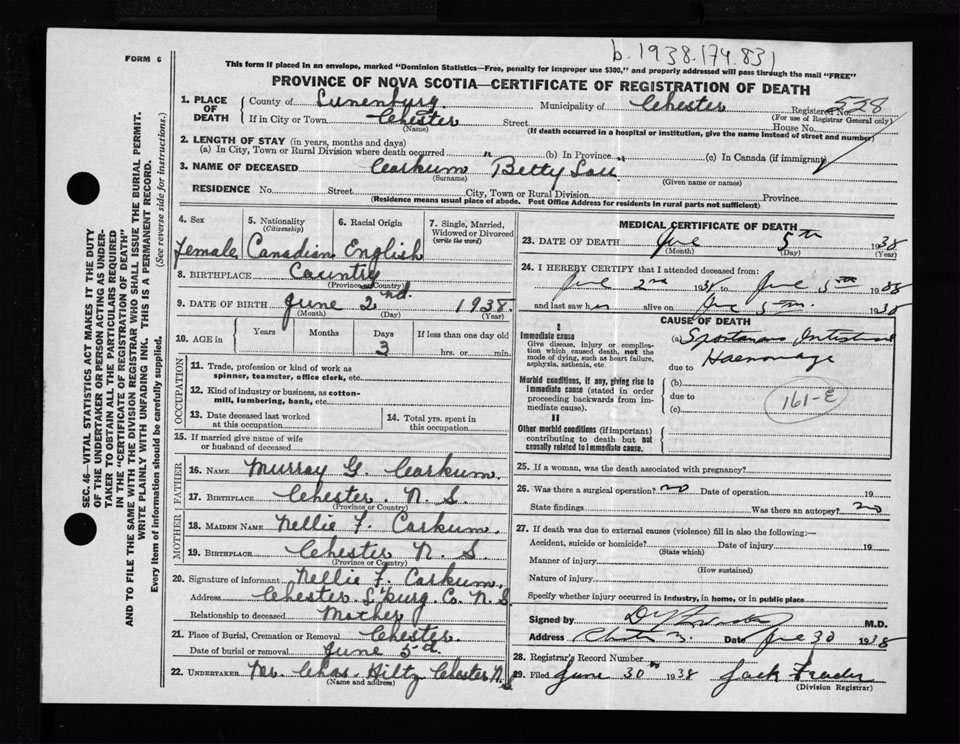 b. 1938.(74.83)
FORM 6
This form if placed in an envelope, marked "Dominion Statistics—Free, penalty for improper use $300," and properly addressed will pass through the mail "FREE"
PROVINCE OF NOVA SCOTIA—CERTIFICATE OF REGISTRATION OF DEATH
1. PLACE OF DEATH
County of Lunenburg Municipality of Chester Registered No. 528
(For use of Registrar General only)
If in City or Town Chester Street House No.
(Name)
(If death occurred in a hospital or institution, give the name instead of street and number)
2. LENGTH OF STAY (in years, months and days)
(a) In City, Town or Rural Division where death occurred " (b) In Province " (c) In Canada (if immigrant)
3. NAME OF DECEASED Corkum Betty Lou
(Surname) (Given name or names)
RESIDENCE No. Street City, Town or Rural Division Province
(Residence means usual place of abode. Post Office Address for residents in rural parts not sufficient)
4. Sex 5. Nationality (Citizenship) 6. Racial Origin 7. Single, Married, Widowed or Divorced (write the word)
Female Canadian English
8. BIRTHPLACE Country
(Province or Country)
9. DATE OF BIRTH June 2nd. 1938.
(Month) (Day) (Year)
10. AGE in Years Months Days If less than one day old
3 hrs. or min.
OCCUPATION
11. Trade, profession or kind of work as spinner, teamster, office clerk, etc.
12. Kind of industry or business, as cotton-mill, lumbering, bank, etc.
13. Date deceased last worked at this occupation
14. Total yrs. spent in this occupation
15. If married give name of wife or husband of deceased
FATHER
16. NAME Murray G. Corkum.
17. BIRTHPLACE Chester. N. S.
(Province or Country)
MOTHER
18. MAIDEN NAME Nellie F. Corkum.
19. BIRTHPLACE Chester N. S.
(Province or Country)
20. Signature of informant Nellie F. Corkum.
Address Chester L'burg. Co. N. S.
Relationship to deceased Mother
21. Place of Burial, Cremation or Removal Chester.
Date of burial or removal June 5d.
22. UNDERTAKER Mr. Chas. Hiltz Chester N. S.
(Name and address)
MEDICAL CERTIFICATE OF DEATH
23. DATE OF DEATH June 5th 1938
(Month) (Day) (Year)
24. I HEREBY CERTIFY that I attended deceased from:
June 2nd 1938 to June 5th 1938
and last saw her alive on June 5th. 1938
CAUSE OF DEATH
I
Immediate cause
Give disease, injury or complication which caused death, not the mode of dying, such as heart failure, asphyxia, asthenia, etc.
(a)
Haemorrage
due to
Morbid conditions, if any, giving rise to immediate cause (stated in order proceeding backwards from immediate cause).
(b)
due to
(c)
161-E
II
Other morbid conditions (if important) contributing to death but not causally related to immediate cause.
25. If a woman, was the death associated with pregnancy?
26. Was there a surgical operation? no Date of operation 19
State findings Was there an autopsy? no
27. If death was due to external causes (violence) fill in also the following:—
Accident, suicide or homicide? Date of injury 19
(State which)
Manner of injury
(How sustained)
Nature of injury
Specify whether injury occurred in industry, in home, or in public place
Signed by M.D.
Address Date June 30 1938
28. Registrar's Record Number
29. Filed June 30 1938
(Division Registrar)
SEC. 46—VITAL STATISTICS ACT MAKES IT THE DUTY
OF THE UNDERTAKER OR PERSON ACTING AS UNDER-
TAKER TO OBTAIN ALL THE PARTICULARS REQUIRED
IN THE "CERTIFICATE OF REGISTRATION OF DEATH"
AND TO FILE THE SAME WITH THE DIVISION REGISTRAR WHO SHALL ISSUE THE BURIAL PERMIT.
WRITE PLAINLY WITH UNFADING INK. THIS IS A PERMANENT RECORD.
Every item of information should be carefully supplied. (See reverse side for instructions.)